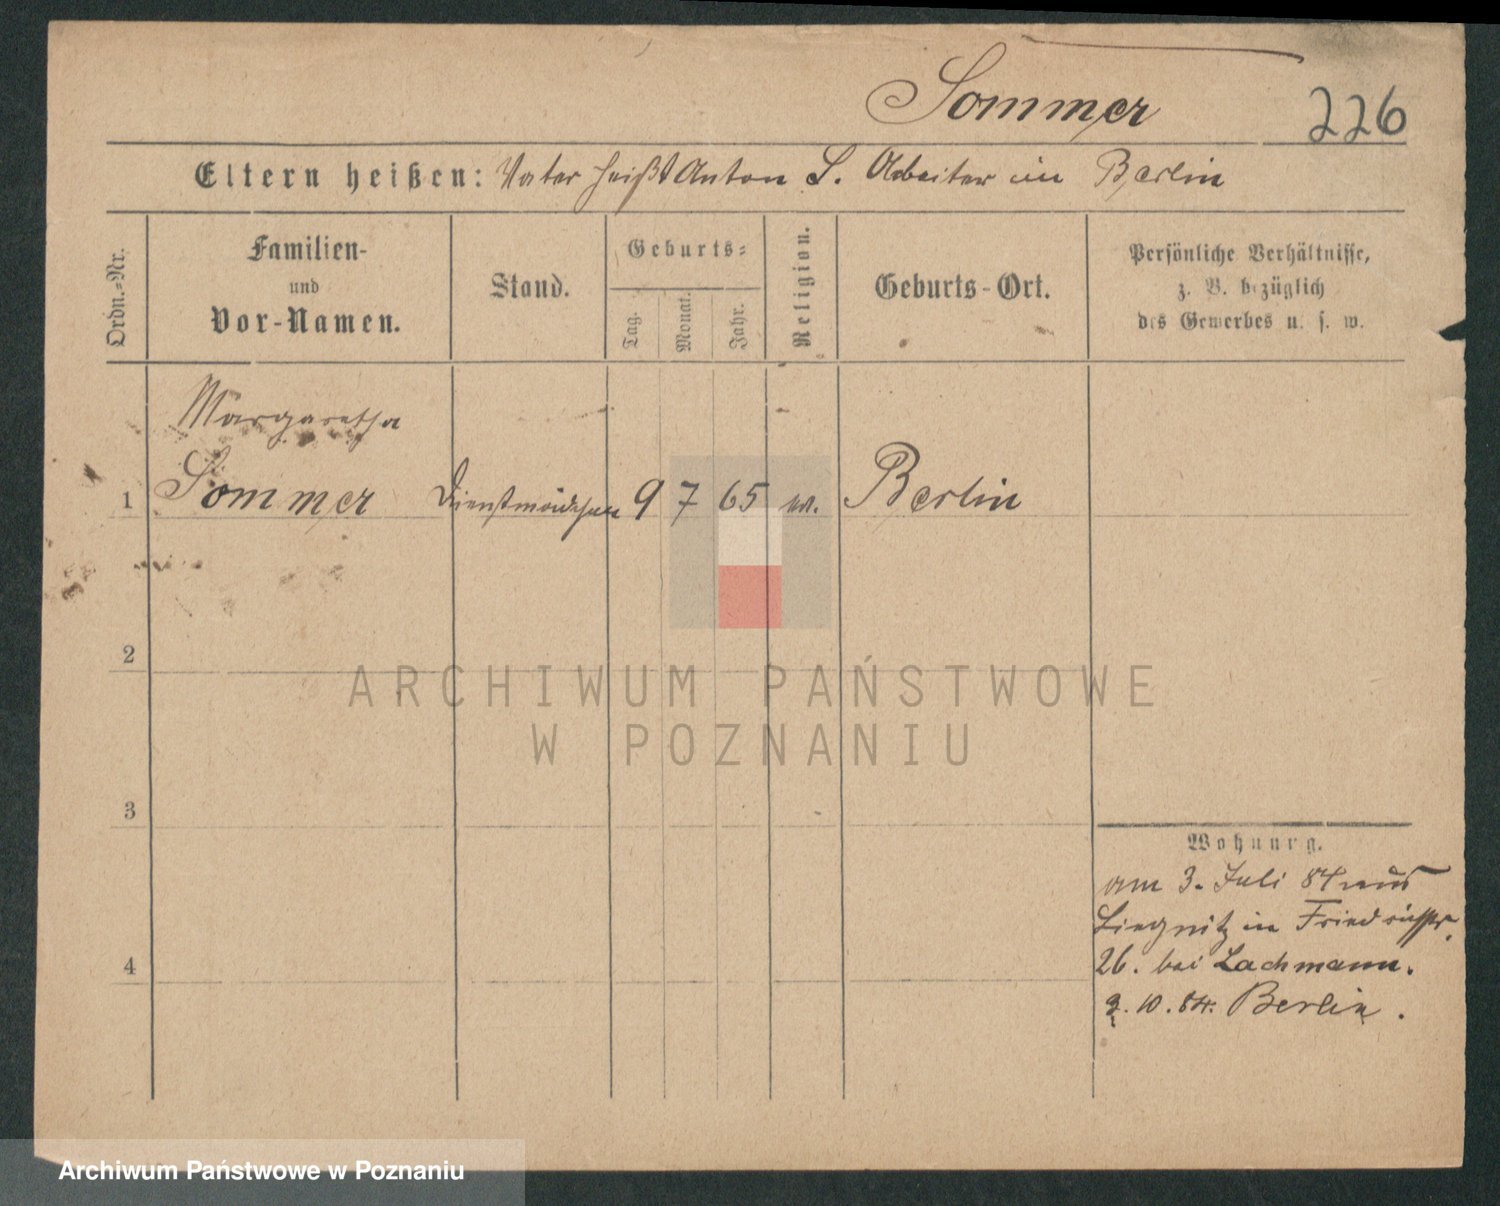 Sommer 226
Eltern heißen: Vater heißt Anton S. Arbeiter in Berlin
Ordn.-Nr.
Familien-
und
Vor-Namen.
Stand.
Geburts-
Tag.
Monat.
Jahr.
Religion.
Geburts-Ort.
Persönliche Verhältnisse,
z. B. bezüglich
des Gewerbes u. s. w.
Margaretha
1 Sommer Dienstmädchen 9 7 65 Berlin
2
3
4
Wohnung.
am 3. Juli 84 aus
Liegnitz in Friedrichstr.
26. bei Lachmann.
10. 84. Berlin.
ARCHIWUM PAŃSTWOWE
W POZNANIU
Archiwum Państwowe w Poznaniu